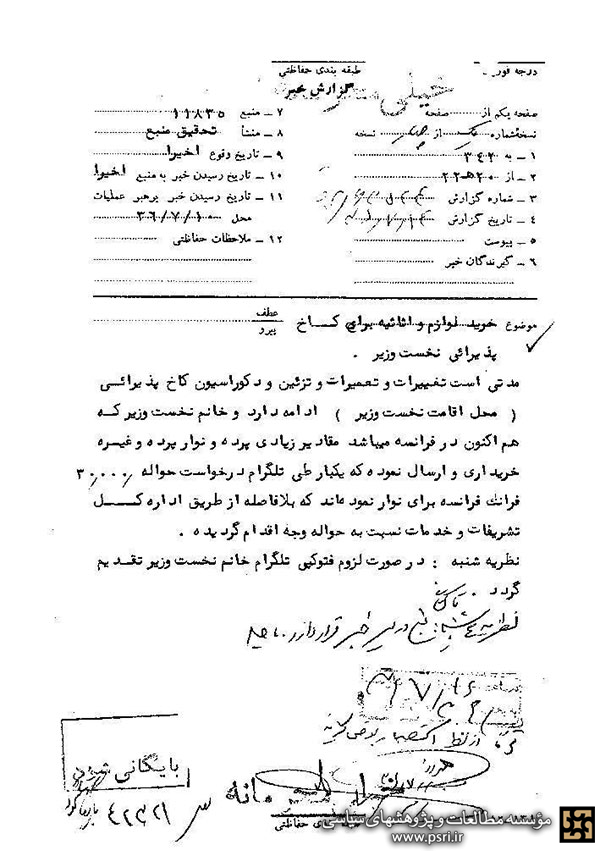 درجه فوریت
طبقه بندی حفاظتی
خیلی محرمانه
گزارش خبر
صفحه یکم از صفحه
نسخه شماره یک از چهار نسخه
۱ ـ به ۳۴۲
۲ ـ از ۲۰ه۲۲
۳ ـ شماره گزارش
۴ ـ تاریخ گزارش
۵ ـ پیوست
۶ ـ گیرندگان خبر
۷ ـ منبع ۱۱۸۳۵
۸ ـ منشأ تحقیق منبع
۹ ـ تاریخ وقوع اخیرا
۱۰ ـ تاریخ رسیدن خبر به منبع اخیرا
۱۱ ـ تاریخ رسیدن خبر برهبر عملیات
محل ۳۶/۷/۱۰
۱۲ ـ ملاحظات حفاظتی
موضوع خرید لوازم و اثاثیه برای کـــاخ
پذیرائی نخست وزیر .
عطف
پیرو
مدتی است تغییرات و تعمیرات و تزئین و دکوراسیون کاخ پذیرائـــی
( محل اقامت نخست وزیر ) ادامه دارد و خانم نخست وزیر کـه
هم اکنون در فرانسه میباشد مقادیر زیادی پرده و نوار پرده و غیـره
خریداری و ارسال نموده که یکبار طی تلگرام درخواست حواله ۳۰,۰۰۰
فرانک فرانسه برای نوار نموده‌اند که بلافاصله از طریق اداره کـــل
تشریفات و خدمات نسبت به حواله وجه اقدام گردیده .
نظریه شنبه : در صورت لزوم فتوکپی تلگرام خانم نخست وزیر تقدیم
گردد .
نظریه شنبه در مسیر خبر قرار دارد
بایگانی شود
۴۲۳۲۱
محرمانه
طبقه بندی حفاظتی
مؤسسه مطالعات و پژوهشهای سیاسی
www.psri.ir